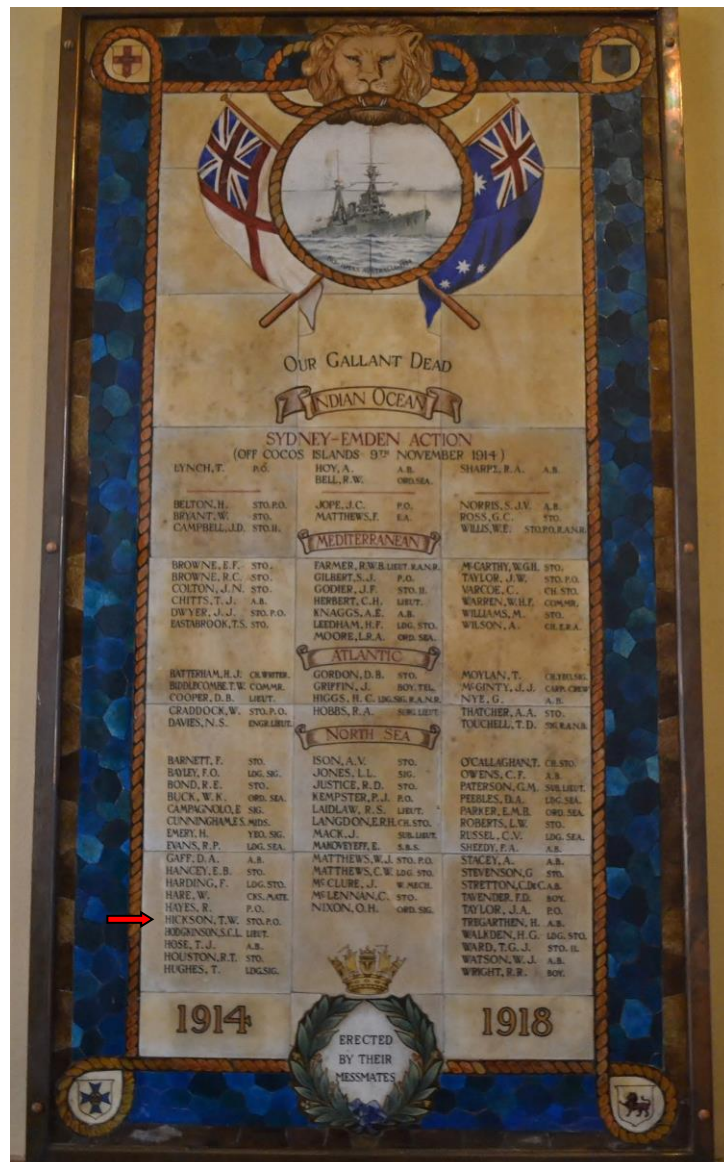 OUR GALLANT DEAD
INDIAN OCEAN
SYDNEY-EMDEN ACTION
(OFF COCOS ISLANDS 9TH NOVEMBER 1914)
LYNCH, T. P.O.
HOY, A. A.B.
BELL, R.W. ORD.SEA.
SHARPE, R.A. A.B.
BELTON, H. STO.P.O.
BRYANT, W. STO.
CAMPBELL, J.D. STO.II.
JOPE, J.C. P.O.
MATTHEWS, F. E.A.
NORRIS, S.J.V. A.B.
ROSS, G.C. STO.
WILLIS, W.E. STO.P.O.R.A.N.R.
MEDITERRANEAN
BROWNE, E.F. STO.
BROWNE, R.C. STO.
COLTON, J.N. STO.
CHITTS, T.J. A.B.
DWYER, J.J. STO.P.O.
EASTABROOK, T.S. STO.
FARMER, R.W.B. LIEUT. R.A.N.R.
GILBERT, S.J. P.O.
GODIER, J.F. STO. II.
HERBERT, C.H. LIEUT.
KNAGGS, A.E. A.B.
LEEDHAM, H.F. LDG. STO.
MOORE, L.R.A. ORD. SEA.
McCARTHY, W.G.H. STO.
TAYLOR, J.W. STO. P.O.
VARCOE, C. CH. STO.
WARREN, W.H.F. COMMR.
WILLIAMS, M. STO.
WILSON, A. CH. E.R.A.
ATLANTIC
BATTERHAM, H.J. CH. WRITER.
BIDDLECOMBE, T.W. COMMR.
COOPER, D.B. LIEUT.
CRADDOCK, W. STO. P.O.
DAVIES, N.S. ENGR.LIEUT.
GORDON, D.B. STO.
GRIFFIN, J. BOY. TEL.
HIGGS, H.C. LDG.SIG. R.A.N.R.
HOBBS, R.A. SURG. LIEUT.
MOYLAN, T. CH.YEO.SIG.
McGINTY, J.J. CARP. CREW
NYE, G. A.B.
THATCHER, A.A. STO.
TOUCHELL, T.D. SIG. R.A.N.R.
NORTH SEA
BARNETT, F. STO.
BAYLEY, F.O. LDG. SIG.
BOND, R.E. STO.
BUCK, W.K. ORD. SEA.
CAMPAGNOLO, E SIG.
CUNNINGHAM, E.S. MIDS.
EMERY, H. YEO. SIG.
EVANS, R.P. LDG. SEA.
GAFF, D.A. A.B.
HANCEY, E.B. STO.
HARDING, F. LDG. STO.
HARE, W. CKS. MATE.
HAYES, R. P.O.
HICKSON, T.W. STO. P.O.
HODGKINSON, S.C.L. LIEUT.
HOSE, T.J. A.B.
HOUSTON, R.T. STO.
HUGHES, T. LDG.SIG.
ISON, A.V. STO.
JONES, L.L. SIG.
JUSTICE, R.D. STO.
KEMPSTER, P.J. P.O.
LAIDLAW, R.S. LIEUT.
LANGDON, E.R.H. CH. STO.
MACK, J. SUB. LIEUT.
MAKOVEYEFF, E. S.B.S.
MATTHEWS, W.J. STO. P.O.
MATTHEWS, C.W. LDG. STO.
McCLURE, J. W. MECH.
McLENNAN, C. STO.
NIXON, O.H. ORD. SIG.
O'CALLAGHAN, T. CH. STO.
OWENS, C.F. A.B.
PATERSON, G.M. SUB. LIEUT.
PEEBLES, D.A. LDG. SEA.
PARKER, E.M.B. ORD. SEA.
ROBERTS, L.W. STO.
RUSSEL, C.V. LDG. SEA.
SHEEDY, F.A. A.B.
STACEY, A. A.B.
STEVENSON, G STO.
STRETTON, C.DE C. A.B.
TAVENDER, F.D. BOY.
TAYLOR, J.A. P.O.
TREGARTHEN, H. A.B.
WALKDEN, H.G. LDG. STO.
WARD, T.G.J. STO. II.
WATSON, W.J. A.B.
WRIGHT, R.R. BOY.
1914
1918
ERECTED
BY THEIR
MESSMATES